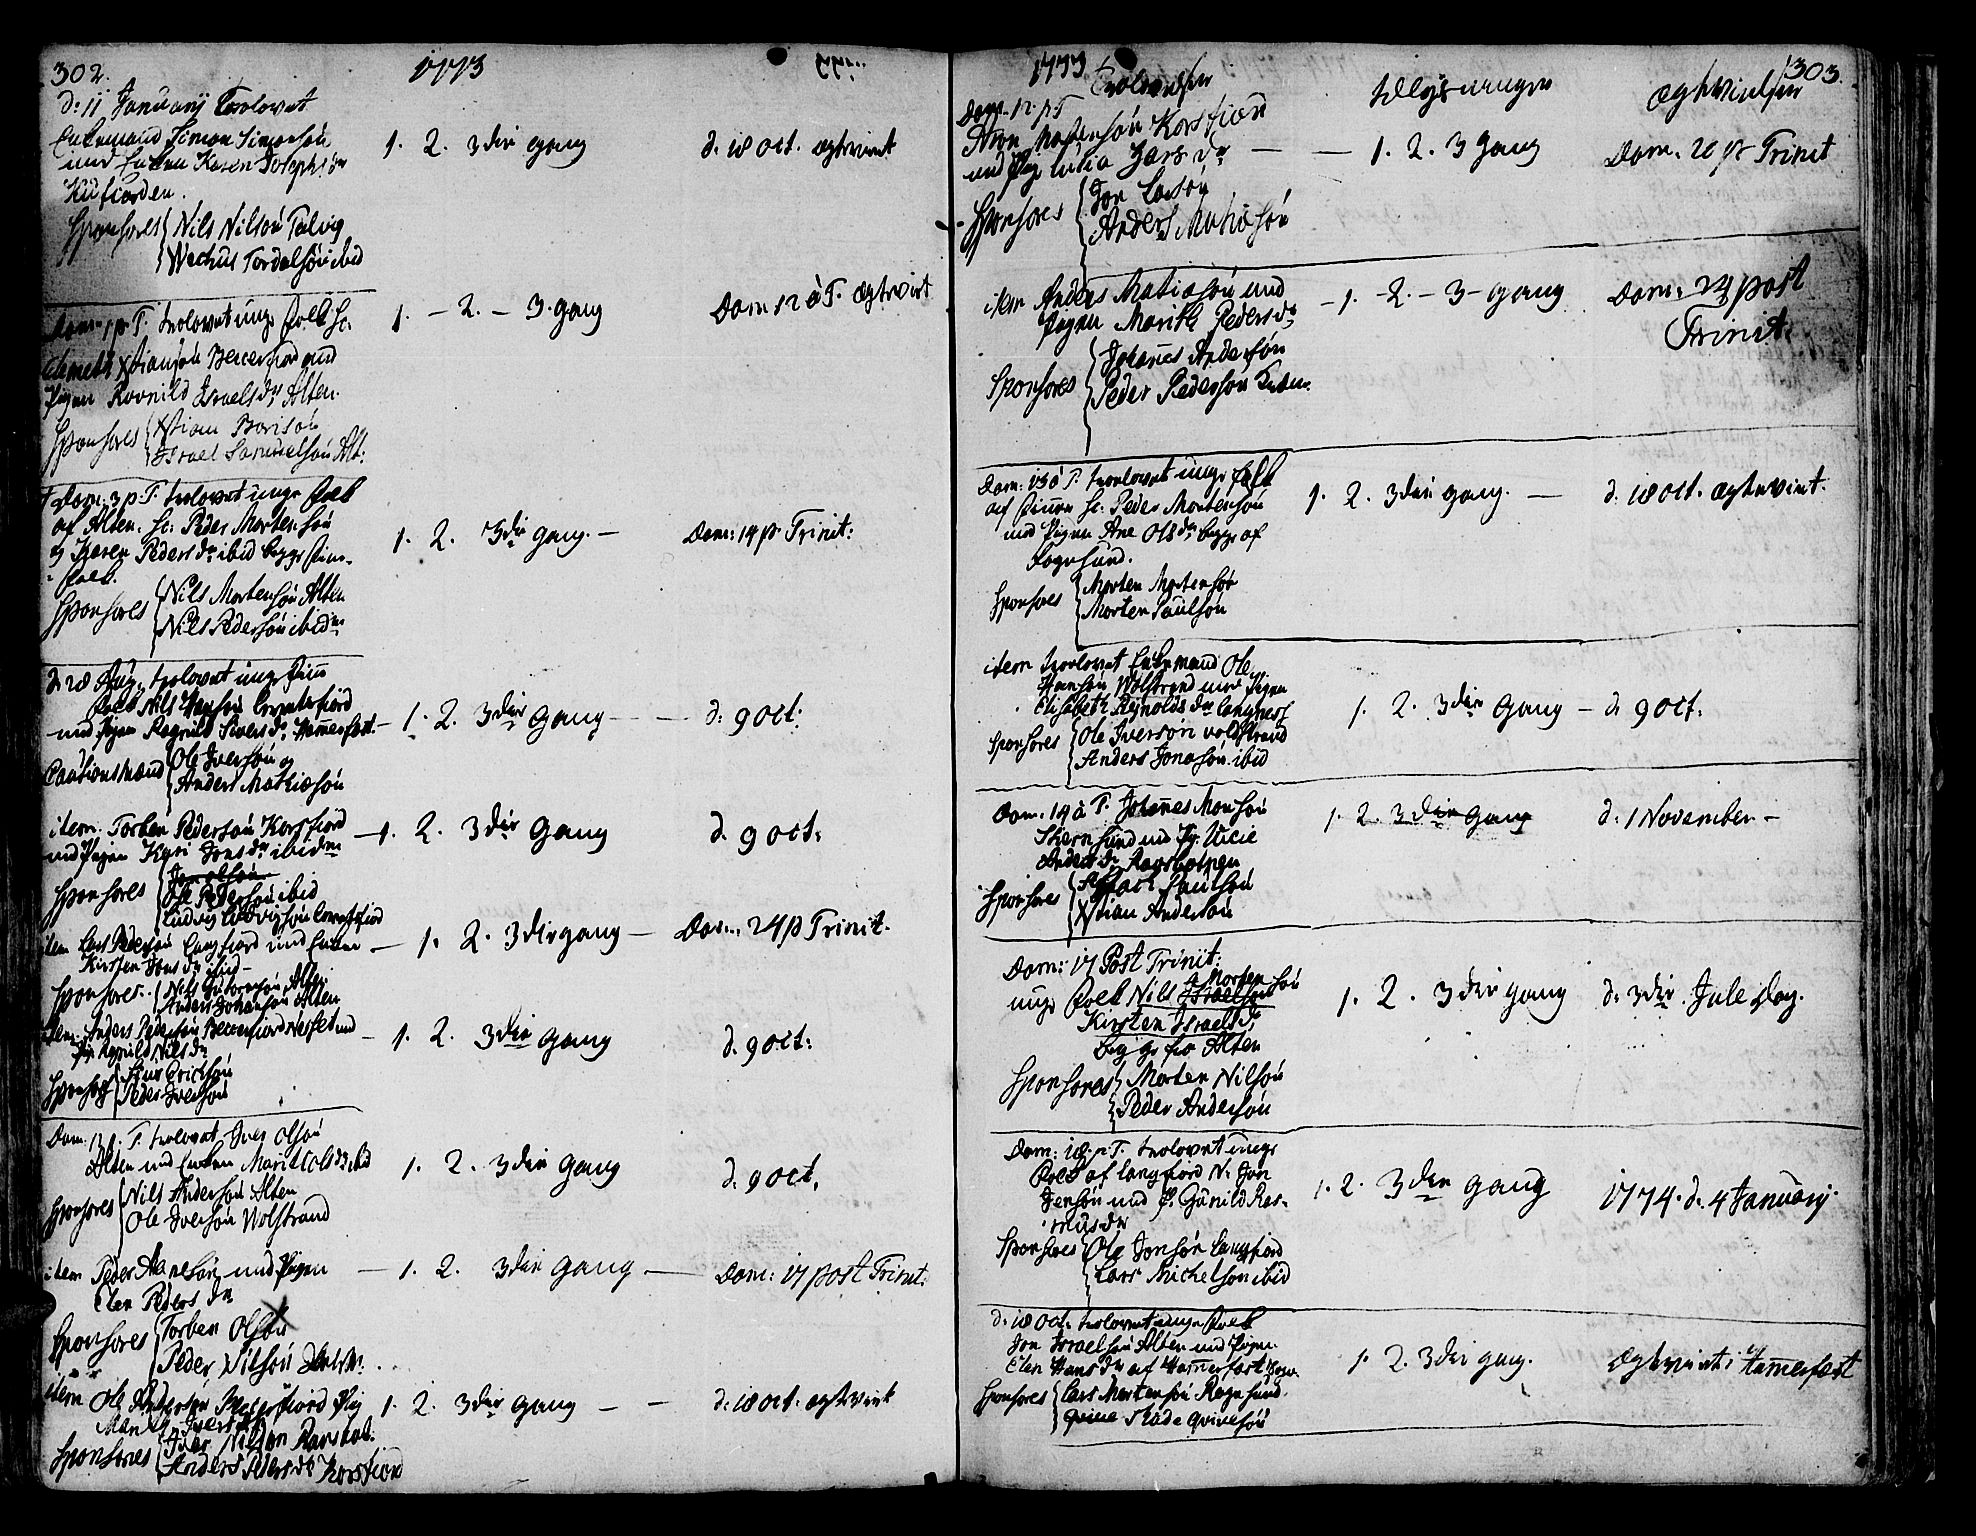 302.
1773
d: 11 Januarij Trolovet
Enkemand Simon Simonsön
med Enken Karen Josephs dr
Kufiorden.
1. 2. 3die gang
d. 18 Oct. ægteviet
Sponsores Nils Nilsön Talvig
Wachus Tordelsön ibid
Dom. 1 p. T. trolovet unge Folk sc.
Clemet Xstiansön Beccerfiord med
Pigen Rovnild Israels dr Alten.
1. - 2. - 3. gang
Dom 12 à T. ægteviet
Sponsores Xstian
Israel Samuelsön Alt:
Dom. 3 p. T. trolovet unge Folk
af Alten. sc: Peder Mortensön
og Karen Peders dr ibid begge
Folk.
1. 2. 3die gang. -
Dom: 14 p. Trinit:
Sponsores Nils Mortensön Alten
Nils Pedersön ibidm
d. 28 Aug. trolovet unge
Folk Nils Hansön
med Pigen Ragnild Sivers dr Hamerfest.
- 1. 2. 3die gang - -
d: 9 Oct:
Cautionsmænd Ole Iversön og
Anders Mathiasön
item: Torben Pedersön Korsfiord
med Pigen Kari Jons dr ibidm
- 1. 2. 3die Gang
d. 9 Oct:
Sponsores Jon Olsön
Ole Pedersön ibid
Ludvig Ludvigsön
item Lars Pedersön Langfiord med Enken
Kirsten Jons dr ibid -
- 1. 2. 3die gang -
Dom. 24 p Trinit.
Sponsores. Nils Alten
Anders Johansön Alten
item Anders Pedersön Beccerfiord næsset med
P. Ragnild Nils dr
- 1. 2. 3die gang
d. 9 Oct:
Sponsores Ericksön
Peder Iversön
Dom. 13 p. T. trolovet Iver Olsön
Alten med Enken Marit Ols dr ibid
1. 2. 3die Gang
d. 9 Oct.
Sponsores Nils Andersön Alten
Ole Iversön Wolstrand
item Peder Hansön med Pigen
Elen Peders dr
- 1. 2. 3die Gang. -
Dom: 17 post Trinit:
Sponsores Torben Olsön
Peder Nilsön
item Ole Andersön Pig
Ivers dr
1. 2. 3die gang - -
d. 18 Oct. ægteviet
Sponsores Iver Nilsön
Anders Peders Korsfiord
1773
Trolovelsen
tillysningen
Ægtevielsen
303.
Dom. 12 p T
Aron Matiesön Korsfiord
med Pigen Lars dr - -
1. 2. 3 Gang
Dom. 20 p Trinit
Sponsores Jon Larsön
Anders Matiasön
item Anders Matiasön med
Pigen Marith Peders dr
- 1. - 2. - 3 - Gang
Dom: 24 post
Trinit:
Sponsores Johannes Andersön
Peder Pedersön
Dom: 13 à T. trolovet unge Folk
af sc. Peder Mortensön
med Pigen Ane Ols dr begge af
Rognsund.
1. 2. 3die gang. -
d. 18 Oct. ægteviet.
Sponsores Morten Mortensön
Morten Paulsön
item trolovet Enkemand Ole
Hansön Wolstrand med Pigen
Elisabeth Reynolds dr Langness
1. 2. 3die Gang -
d. 9 Oct.
Sponsores Ole Iversön Wolstrand
Anders Jonasön ibid
Dom. 14 à T. Johannes Monsön
med Pig.
Anders dr
1. 2. 3die gang
d. 1 November -
Sponsores Paulsön
Xstian Andersön
Dom: 17 Post Trinit:
unge Folk Nils Israelsön Mortensön
Kirsten Israels dr
begge fra Alten
1. 2. 3die gang
d. 3die Jule Dag.
Sponsores Morten Nilsön
Peder Andersön
Dom: 18. p. T. trolovet unge
Folk af Langfiord N. Jon
Jensön med P. Gunild Ras-
mus dr
1. 2. 3die gang
1774. d. 4 Januarij.
Sponsores Ole Jonsön Langfiord
Lars Michelsön ibid
d. 18 Oct. trolovet unge Folk
Jon Israelsön Alten med Pigen
Elen Hans dr af Hamerfest
1. 2. 3die gang.
Ægteviet i Hamerfest
Sponsores Lars Mortensön Rognsund.
Qvive Qvivesön